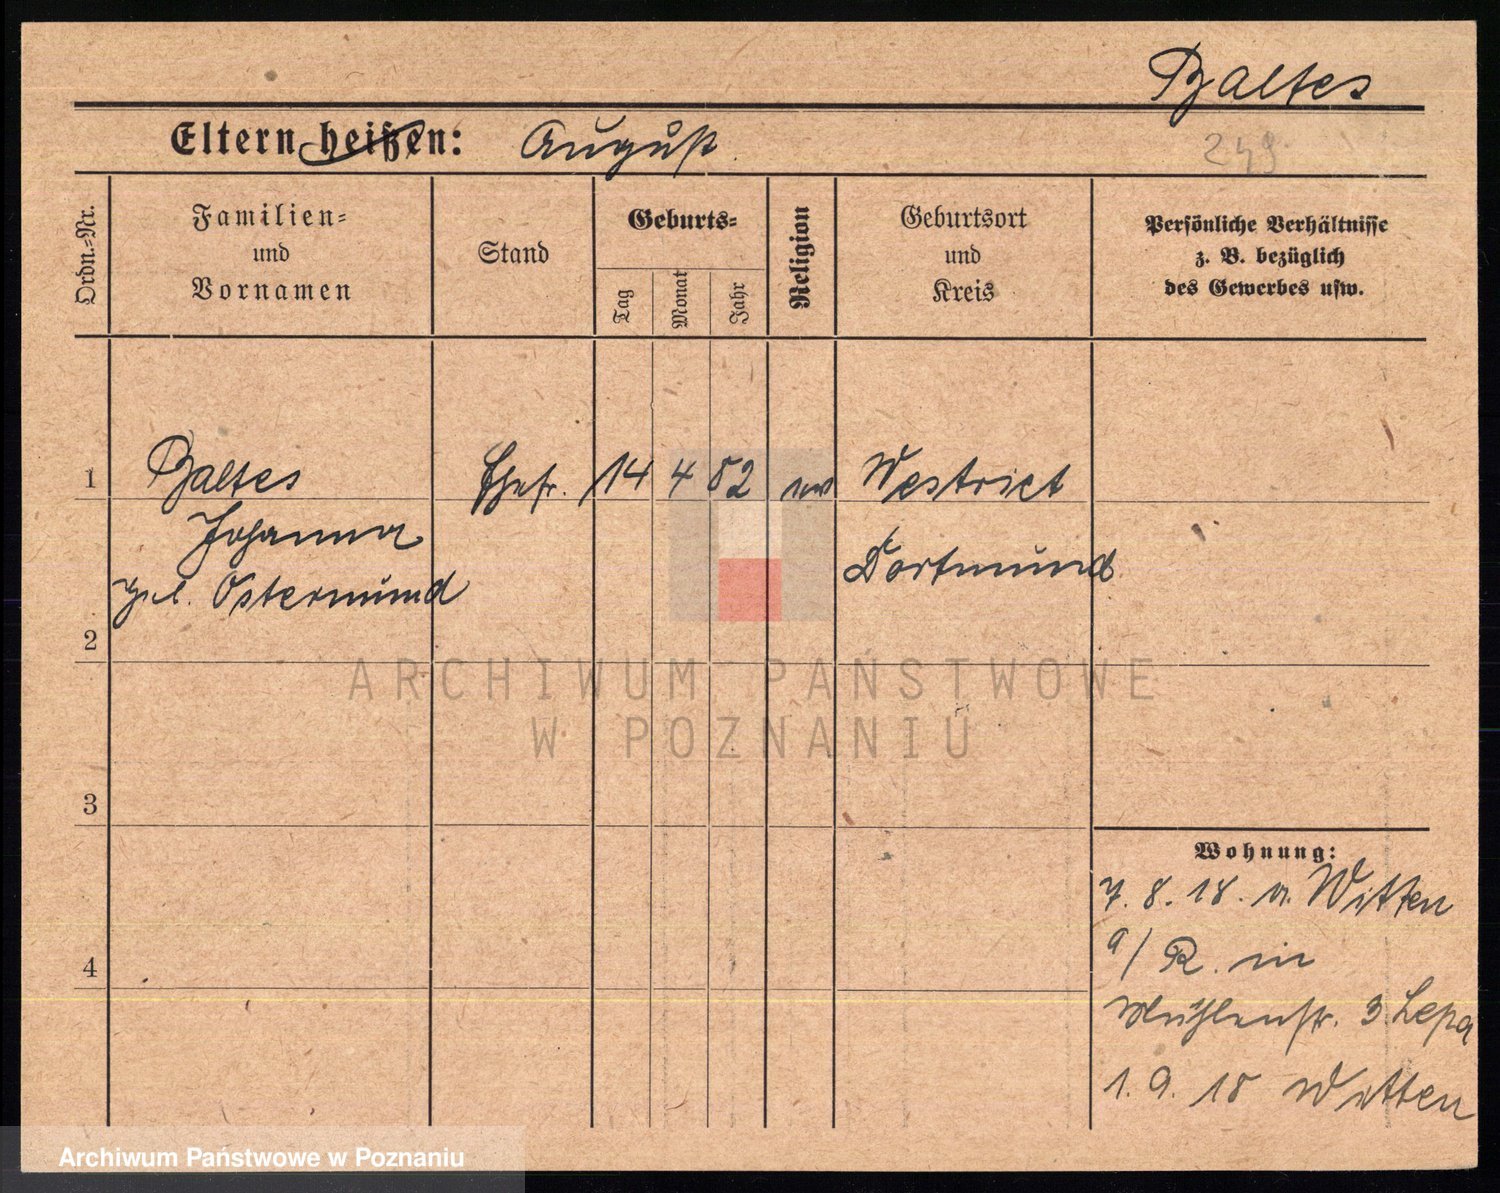 Baltes
Eltern heißen: August
249
Ordn.-Nr.
Familien-
und
Vornamen
Stand
Geburts-
Tag
Monat
Jahr
Religion
Geburtsort
und
Kreis
Persönliche Verhältnisse
z. B. bezüglich
des Gewerbes usw.
1 Baltes Ehefr. 14 4 82 ev Westrict
Johanna
Dortmund
geb. Ostermund
2
3
4
Wohnung:
7. 8. 18. v. Witten
a/R. in
Mühlenstr. 3 Lepa
1. 9. 18 Witten
ARCHIWUM PAŃSTWOWE
W POZNANIU
Archiwum Państwowe w Poznaniu